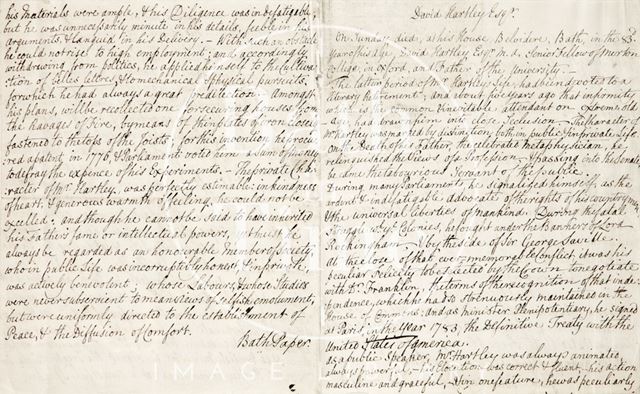 his materials were ample, & his Diligence was indefatigable,
but he was unnecessarily minute in his details, feeble in his
arguments & languid in his Delivery – With such an obstacle
he could not rise to high employment; and, accordingly
withdrawing from politics, he applied himself to the cultiva
tion of belles lettres & to mechanical & physical pursuits
for which he had always a great predilection Amongst
his plans, will be recollected one for securing houses from
the havages of Fire, by means of thin plates of iron closely
fastened to the tops of the Joists; for this invention he procu
red a patent in 1776, & Parliament voted him a sum of money
to defray the expence of his Experiments. – The private cha
racter of Mr Hartley, was perfectly estimable: in kindness
of heart, & generous warmth of feeling, he could not be
excelled; and though he cannot be said to have inherited
his Father's fame or intellectual powers, yet he will
always be regarded as an honorable member of society;
who in public Life was incorruptibly honest, & in private
was actively benevolent; whose Labours, & whose Studies
were never subservient to mean views of selfish emolument,
but were uniformly directed to the establishment of
Peace, & the Diffusion of Comfort.
Bath Paper
David Hartley Esqr.
On Sunday died, at his House, Belvidere, Bath, in the
Year of his age David Hartley Esqr M.A. Senior Fellow of Merton
College, in Oxford, and Father of the University –
The latter period of Mr Hartley's Life, had been devoted to a
literary retirement, and a few years ago that infirmity
which is the common & inevitable attendant on extreme old
age had drawn him into close Seclusion – The Character of
Mr Hartley was marked by distinction, both in public & in private Life
On the Death of his Father, the celebrated metaphysician, he
relinquished the Views of a Profession & passing into the Senate
became the laborious Servant of the public.
During many Parliaments, he signalized himself, as the
ardent & indefatigable advocate of the rights of his country men
& the universal liberties of mankind. During the fatal
Struggle with the Colonies, he fought under the Banners of Lord
Rockingham & by the side of Sir George Saville.
At the close of that ever-memorable Conflict, it was his
peculiar Felicity to be selected by the Crown to negotiate
with Dr. Franklin, the terms of the recognition of that inde
pendence, which he had so strenuously maintained in the
House of Commons: and as minister Plenipotentiary, he signed
at Paris, in the Year 1783, the Definitive Treaty with the
United States of America.
As a public Speaker, Mr Hartley was always animated,
always powerful; – his Elocution was correct & fluent – his action
masculine and graceful. – In one feature, he was peculiarly